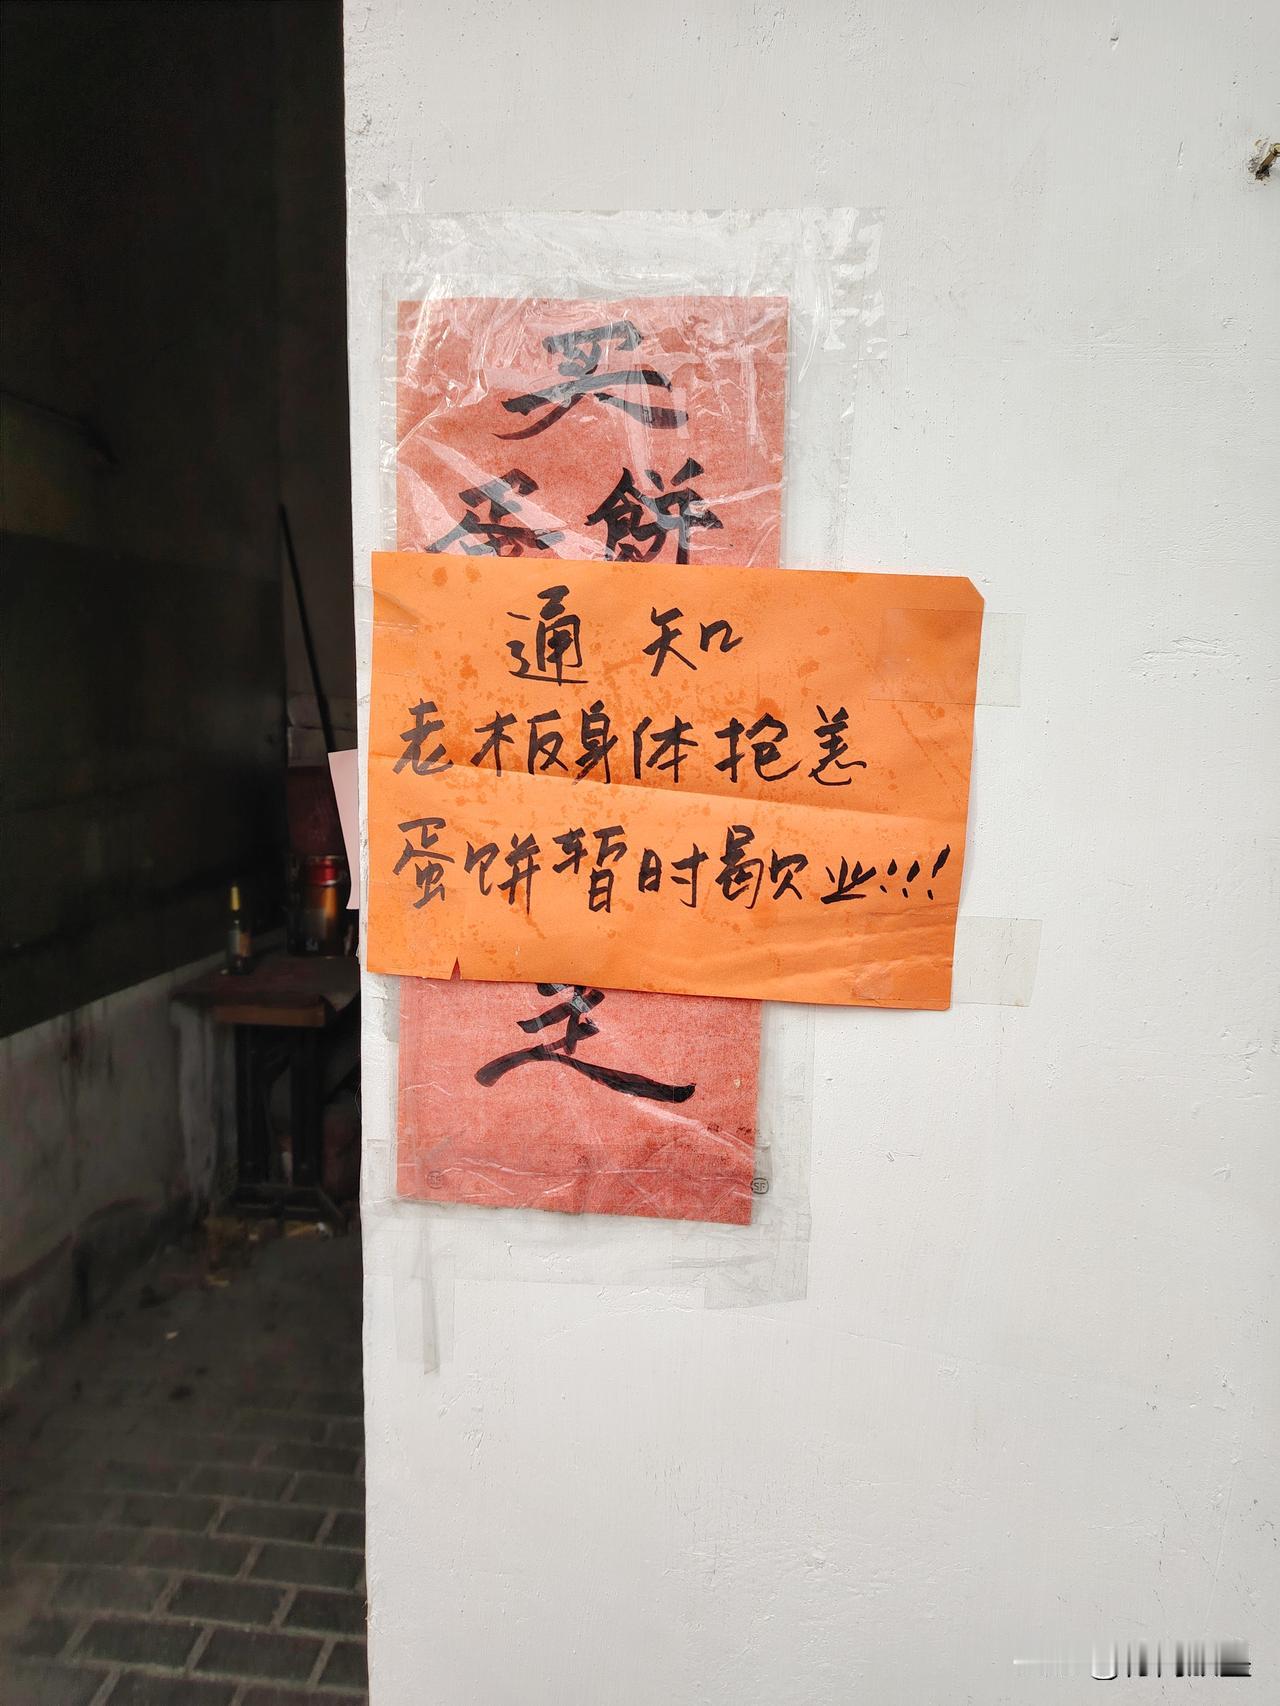 买
蛋餅
通知
老板身体抱恙
蛋饼暂时歇业!!!
SF